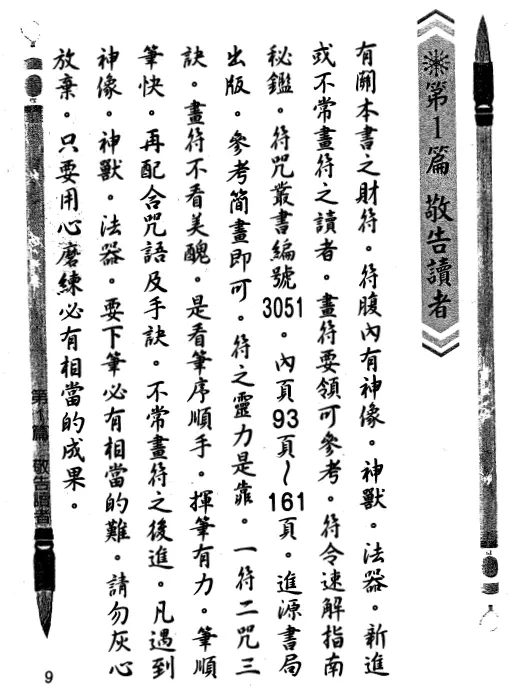 第1篇 敬告讀者
有關本書之財符。符腹內有神像。神獸。法器。新進
或不常畫符之讀者。畫符要領可參考。符令速解指南
秘鑑。符咒叢書編號3051。內頁93頁~161頁。進源書局
出版。參考簡畫即可。符之靈力是靠。一符二咒三
訣。畫符不看美醜。是看筆序順手。揮筆有力。筆順
筆快。再配合咒語及手訣。不常畫符之後進。凡遇到
神像。神獸。法器。要下筆必有相當的難。請勿灰心
放棄。只要用心磨練必有相當的成果。
第1篇 敬告讀者
9